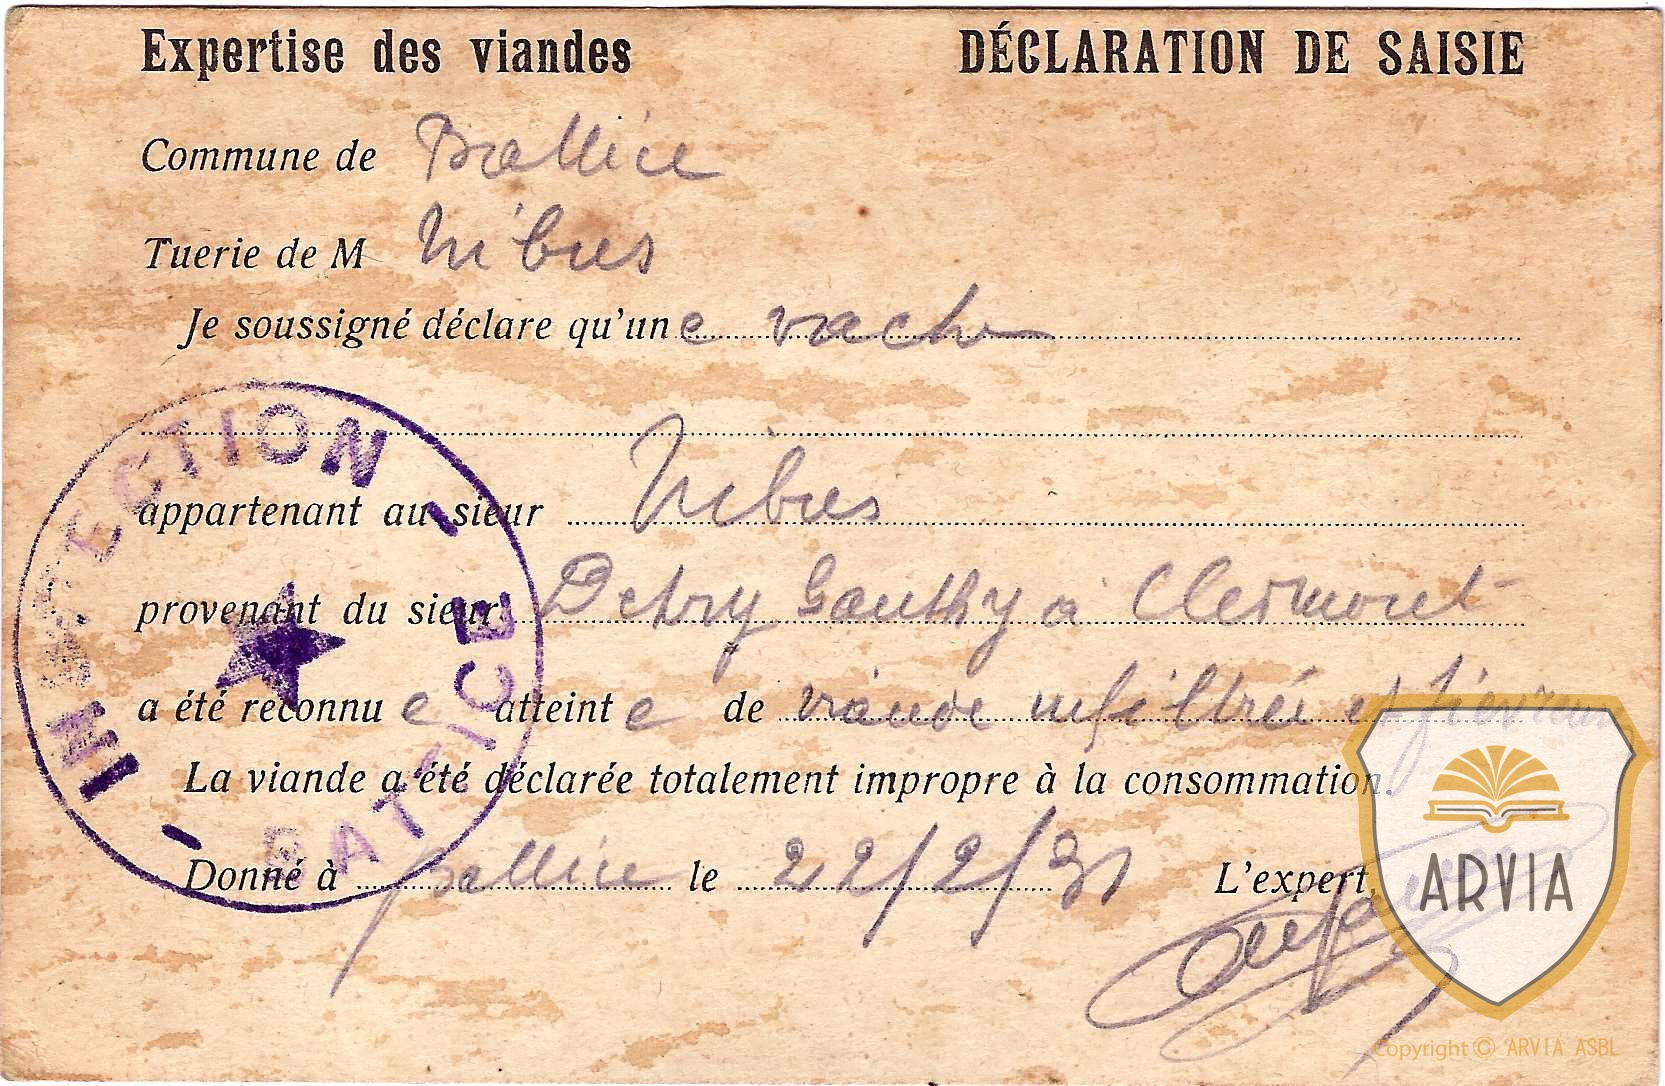 Expertise des viandes DÉCLARATION DE SAISIE
Commune de Battice
Tuerie de M Nibus
Je soussigné déclare qu'une vache
appartenant au sieur Nibus
provenant du sieur Detry Gauthy à Clermont
a été reconnue atteinte de viande infiltrée et fiévreuse
La viande a été déclarée totalement impropre à la consommation.
Donné à Battice le 22/2/31 L'expert,
INSPECTION
BATTICE
ARVIA
Copyright © ARVIA ASBL